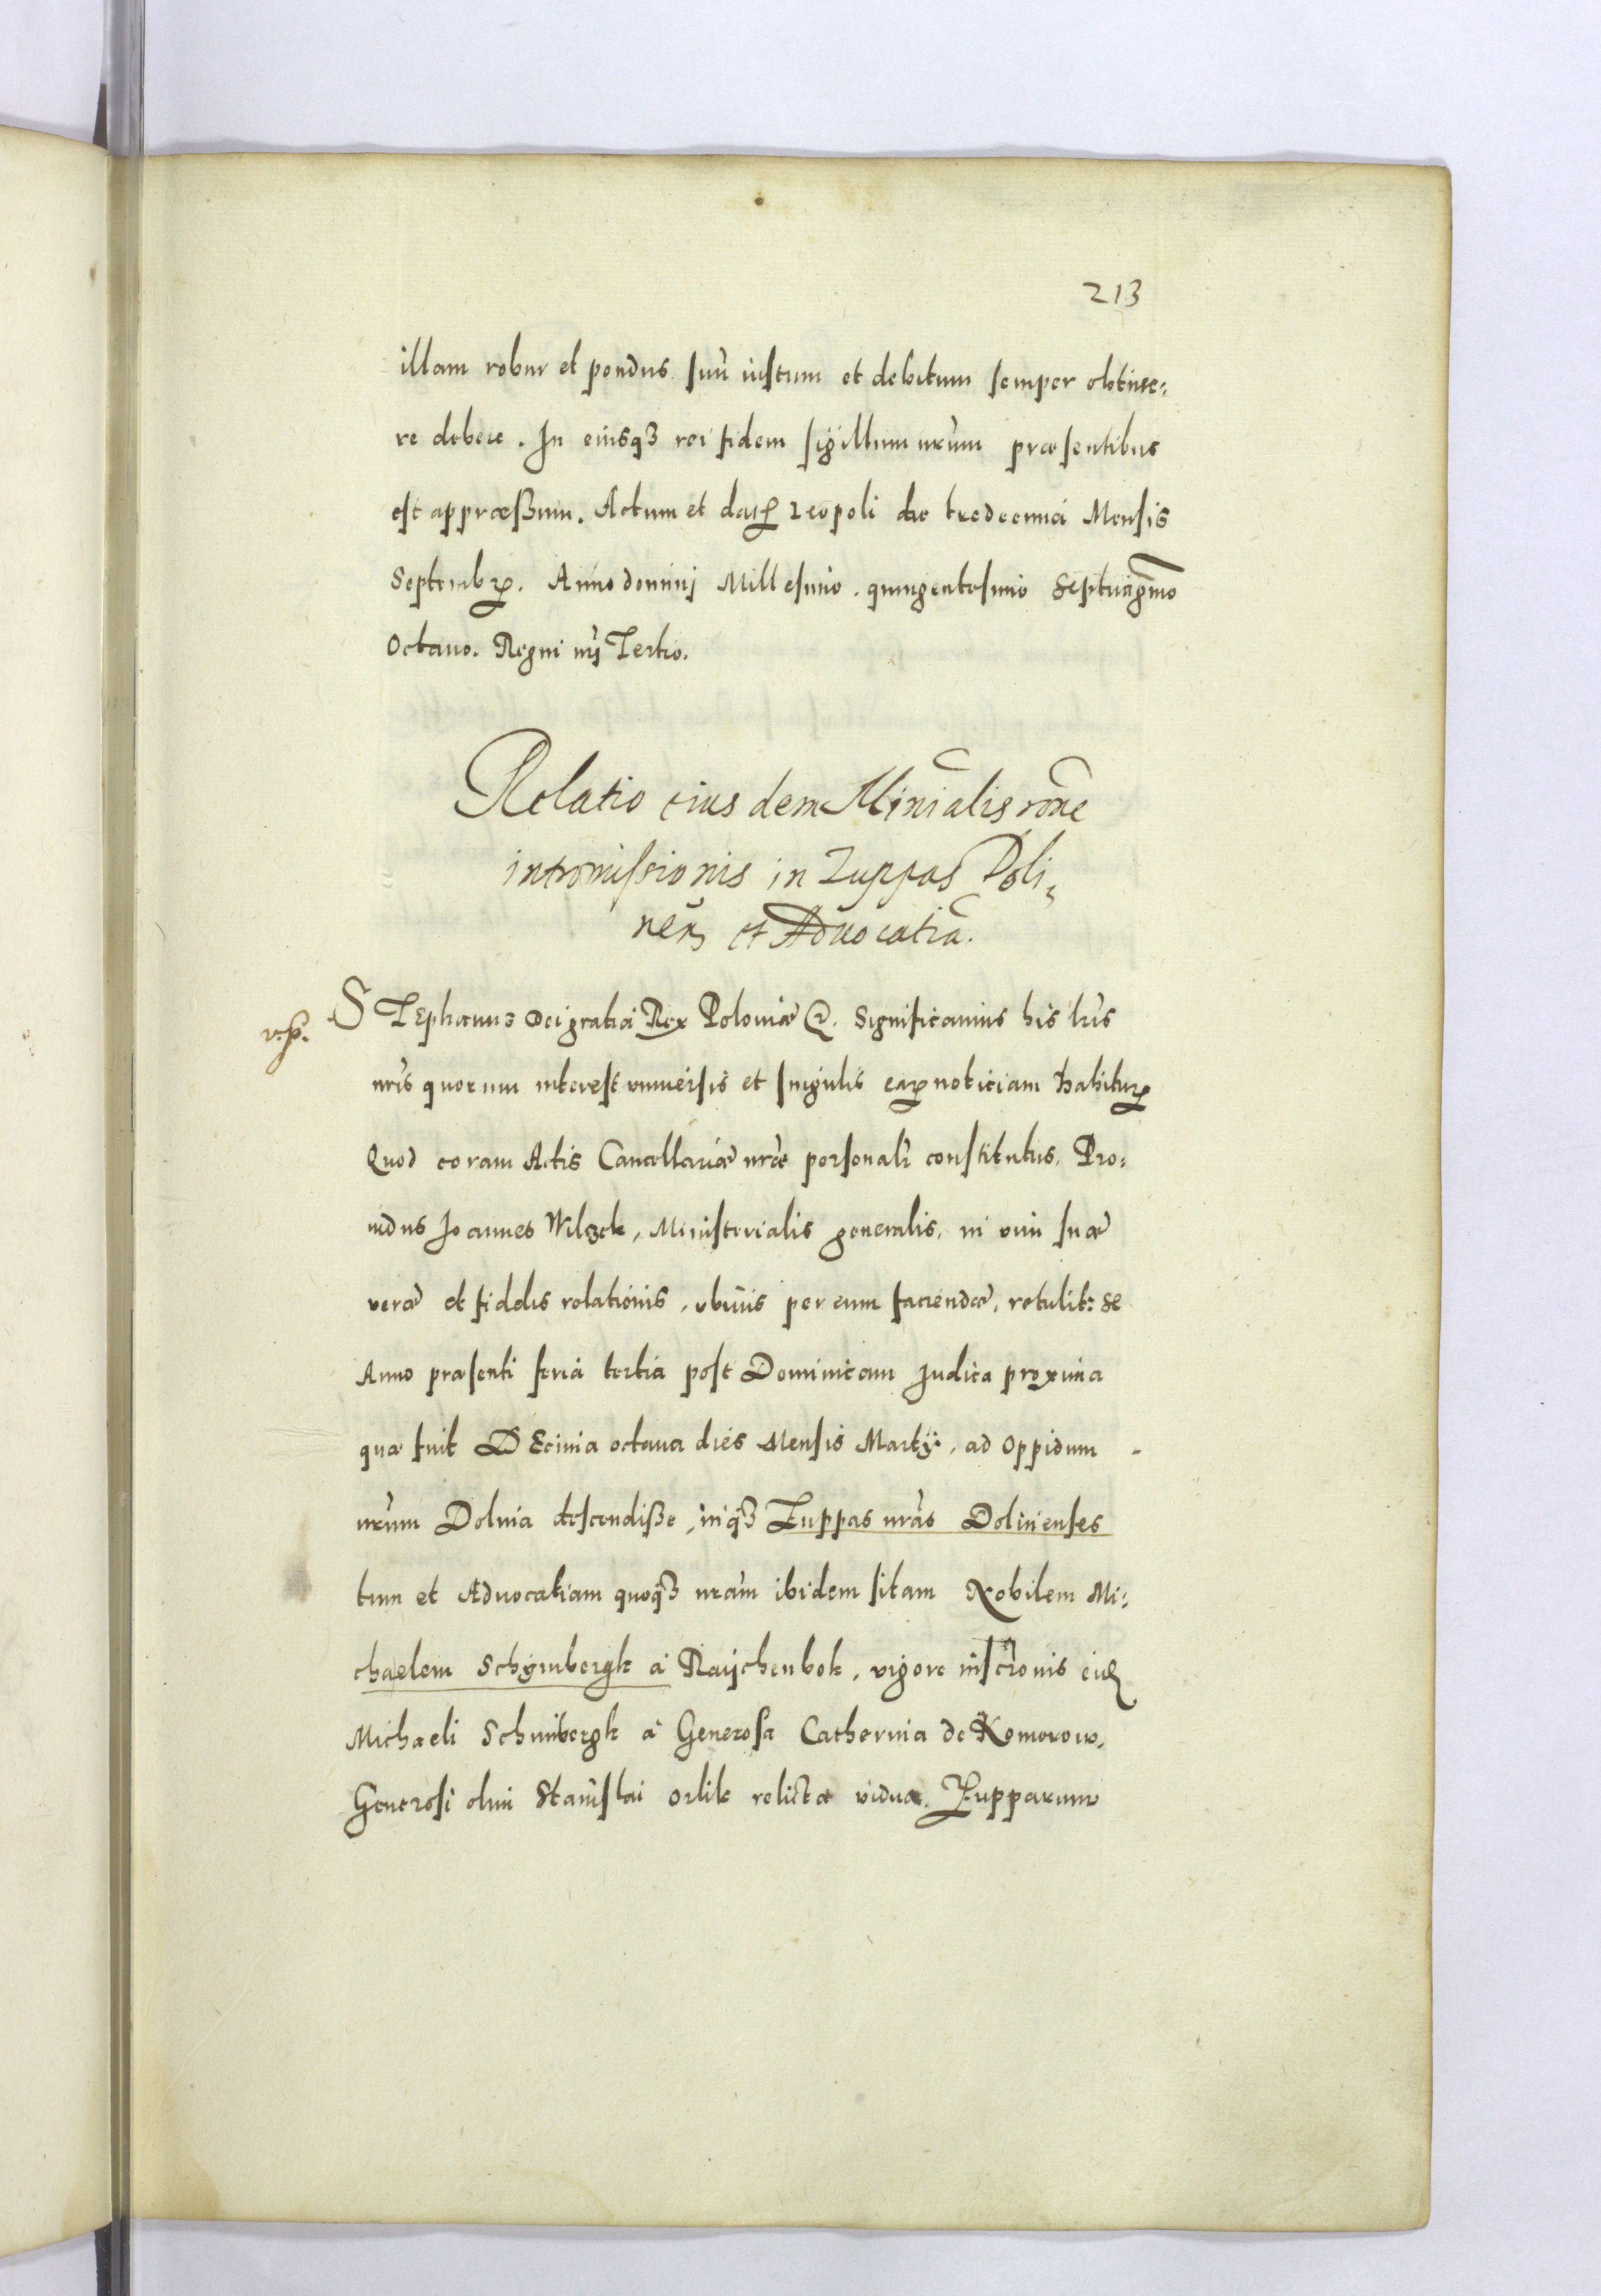 213
illam robur et pondus suũ iustum et debitum semper obtine:
re debere. In eiusqꝫ rei fidem sigillum nr̃um præsentibus
est appræßum. Actum et datꝭ Leopoli die tredecima Mensis
Septembꝝ. Anno dominj Millesimo. quingentesimo Septuagm̃o
Octauo. Regni nr̃j Tertio.
Relatio eius dem Min̄ialis rōne
intromissionis in Zuppas Doli,
neñ et Aduocatiā.
v. p.
STEphanus Dei gratia Rex Poloniæ &. Significamus his lr̃is
nr̃is quorum interest vniuersis et singulis eaꝝ noticiam habituꝝ
Quod coram Actis Cancellariæ nr̃æ personalr̃ constitutus, Pro:
uidus Joannes Wilczek, Ministerialis generalis, in vim suæ
veræ et fidelis relationis, vbiuis per eum faciendæ, retulit: se
Anno præsenti feria tertia post Dominicam Judica proxima
quæ fuit DEcima octaua dies Mensis Martÿ, ad Oppidum
nr̃um Dolina descendiße, inqꝫ Zuppas nr̃as Dolinenses
tum et Aduocatiam quoqꝫ nr̃am ibidem sitam Nobilem Mi:
chaelem Schymbergk à Raijchenbok, vigore inscr̃onis eidꝫ
Michaeli Schimbergk à Generosa Catherina de Komorow,
Generosi olim Stanislai Orlik relicta vidua. Zupparum